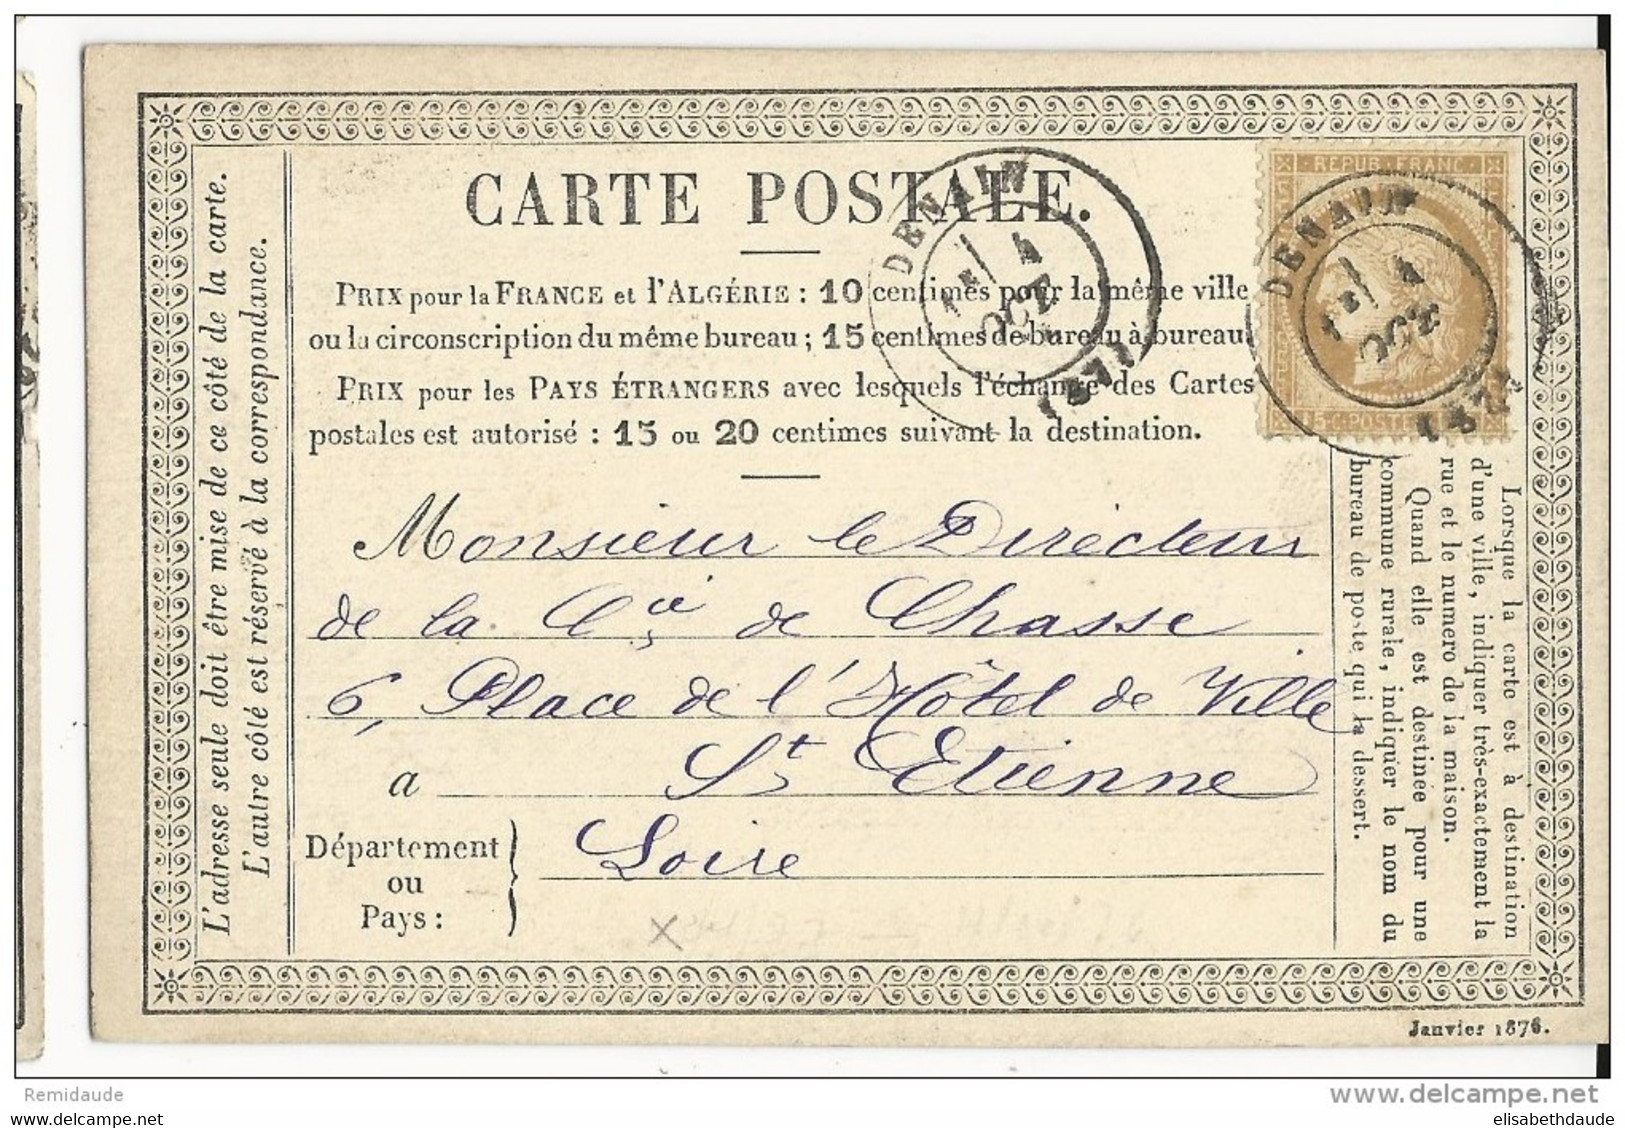 CARTE POSTALE.
PRIX pour la FRANCE et l'ALGÉRIE : 10 centimes pour la même ville
ou la circonscription du même bureau ; 15 centimes de bureau à bureau.
PRIX pour les PAYS ÉTRANGERS avec lesquels l'échange des Cartes
postales est autorisé : 15 ou 20 centimes suivant la destination.
Monsieur le Directeur
de la Cie de Chasse
6, Place de l'Hôtel de Ville
a St Etienne
Département
ou
Pays :
Loire
L'adresse seule doit être mise de ce côté de la carte.
L'autre côté est réservé à la correspondance.
Lorsque la carte est à destination
d'une ville, indiquer très-exactement la
rue et le numero de la maison.
Quand elle est destinée pour une
commune rurale, indiquer le nom du
bureau de poste qui la dessert.
REPUB. FRANC.
15 C. POSTES
DENAIN
4
OCT.
DENAIN
4
OCT.
Janvier 1876.
Remidaude
www.delcampe.net
elisabethdaude